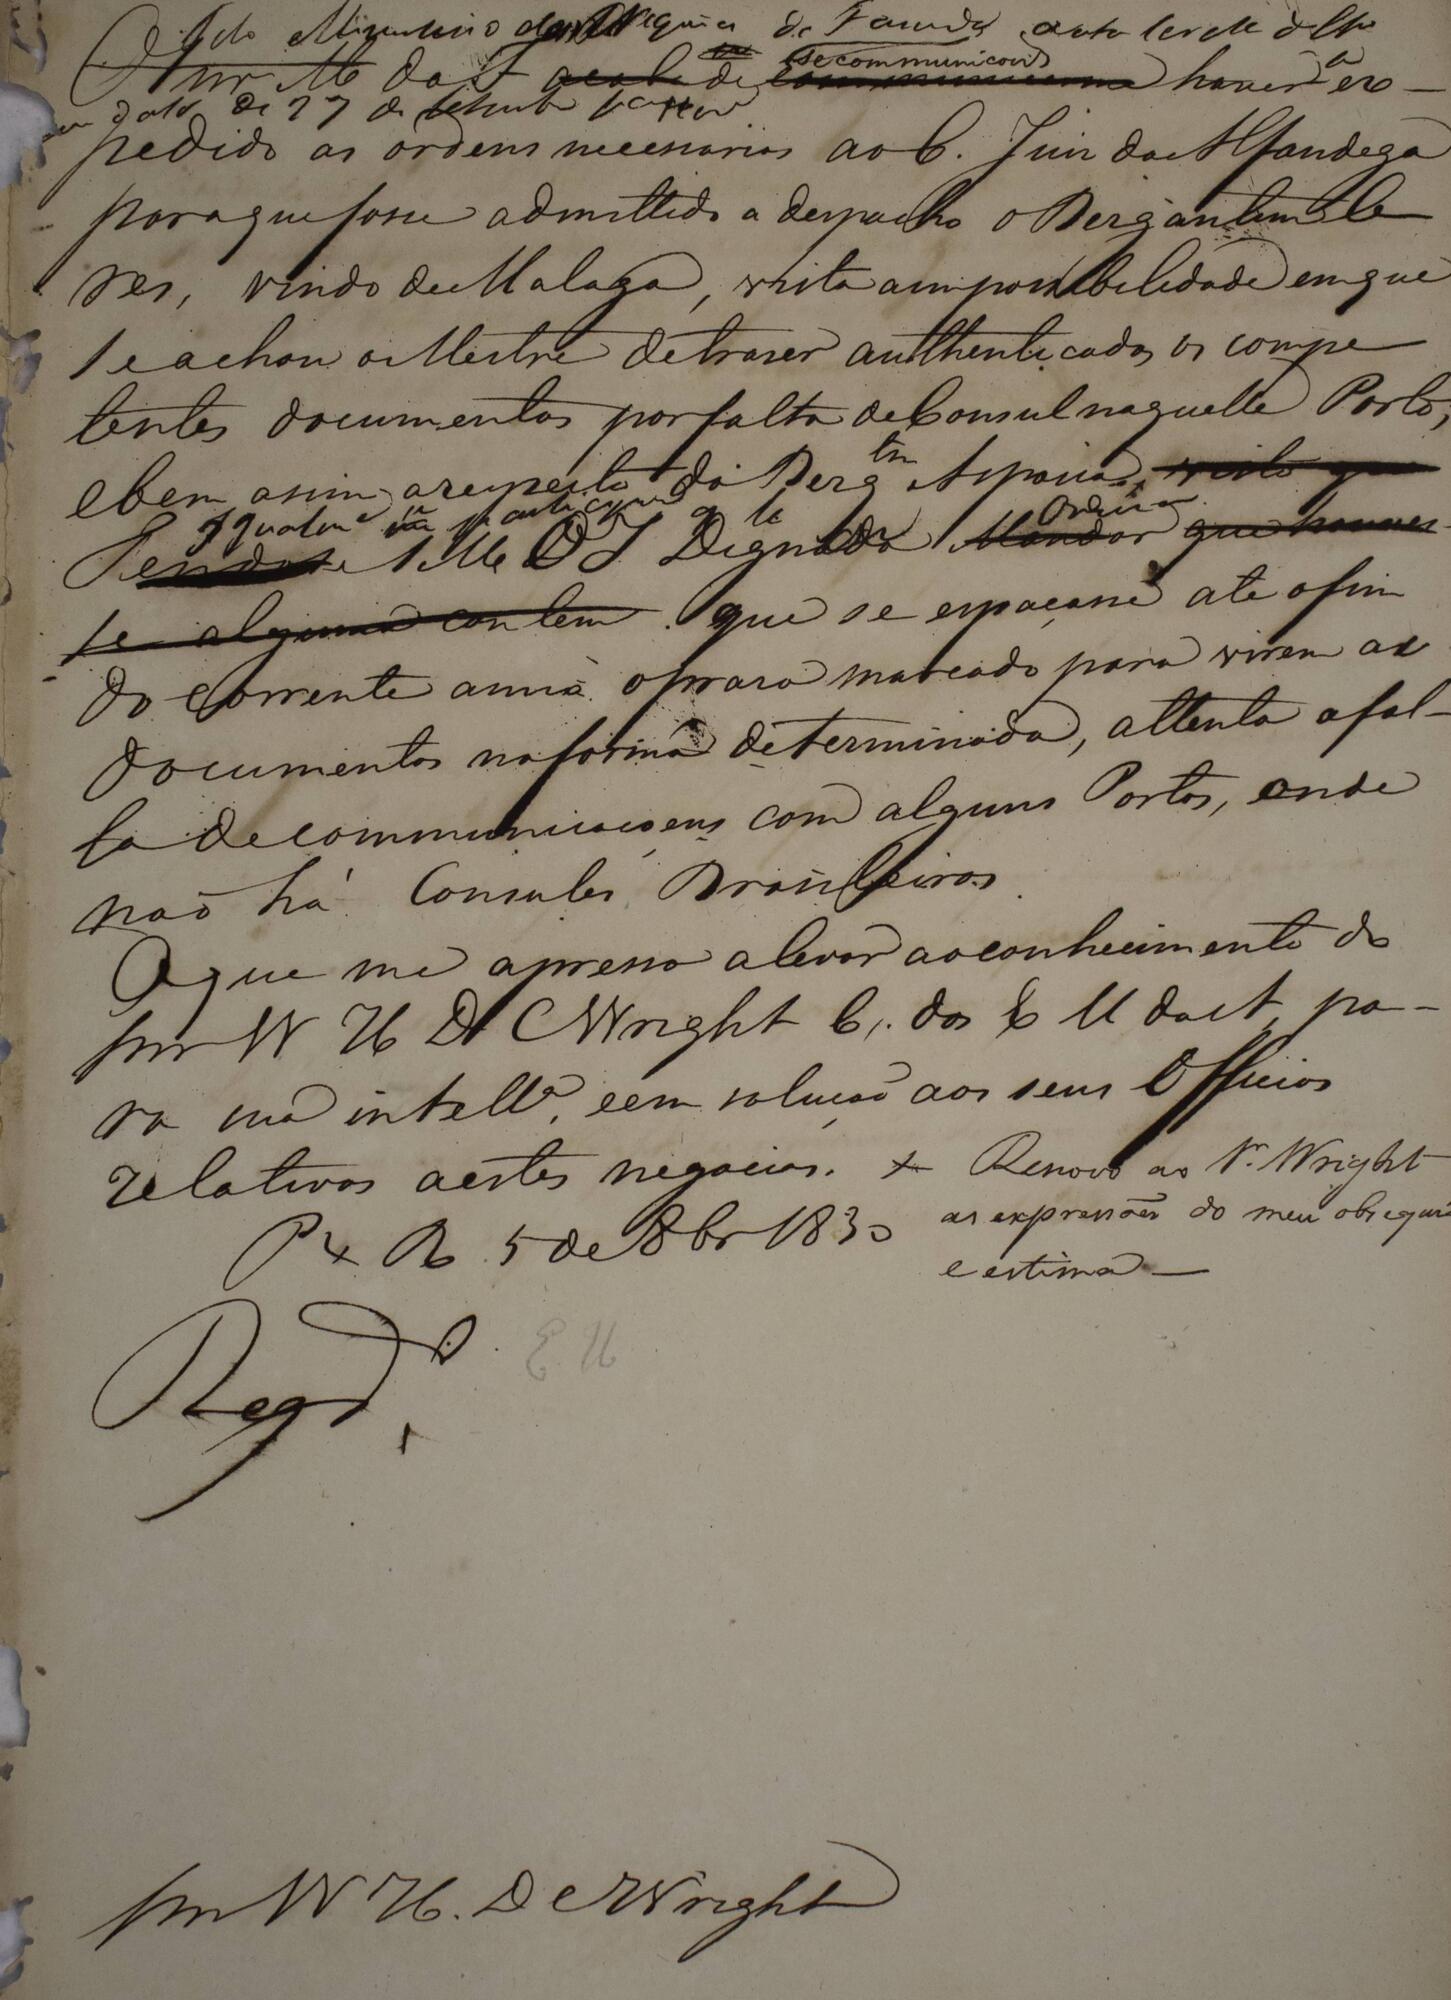 Pelo Ministerio dos Negocios da Fazenda
se communicou
Snr M da F acaba de haver ex-
em data de 27 de
pedido as ordens necessarias ao C. Juiz da Alfandega
para que fosse admittido a despacho o Bergantim Ce
res, vindo de Malaga, vista a impossibilidade em que
se achou o Mestre de traser authenticados os compe
tentes documentos por falta de Consul naquelle Porto,
e bem assim a respeito do Berg.tm visto que
Igualm.e
Ordenar
Tendo-se S M O I Dignado Mandar que houves-
se alguma que se espaçasse até o fim
do corrente anno o praso marcado para virem os
documentos na forma determinada, attenta a fal-
ta de communicaçoens com alguns Portos, onde
não há Consules Brasileiros.
O que me apresso a levar ao conhecimento do
Snr W H D C Wright C. dos E U da A, pa-
ra sua intell.a, e em solução aos seus Officios
relativos a estes negocios. + Renovo ao Sr. Wright
as expressões do meu obsequio
e estima —
P. R 5 de 8br 1830
Regd.
E U
Snr W H. D C Wright